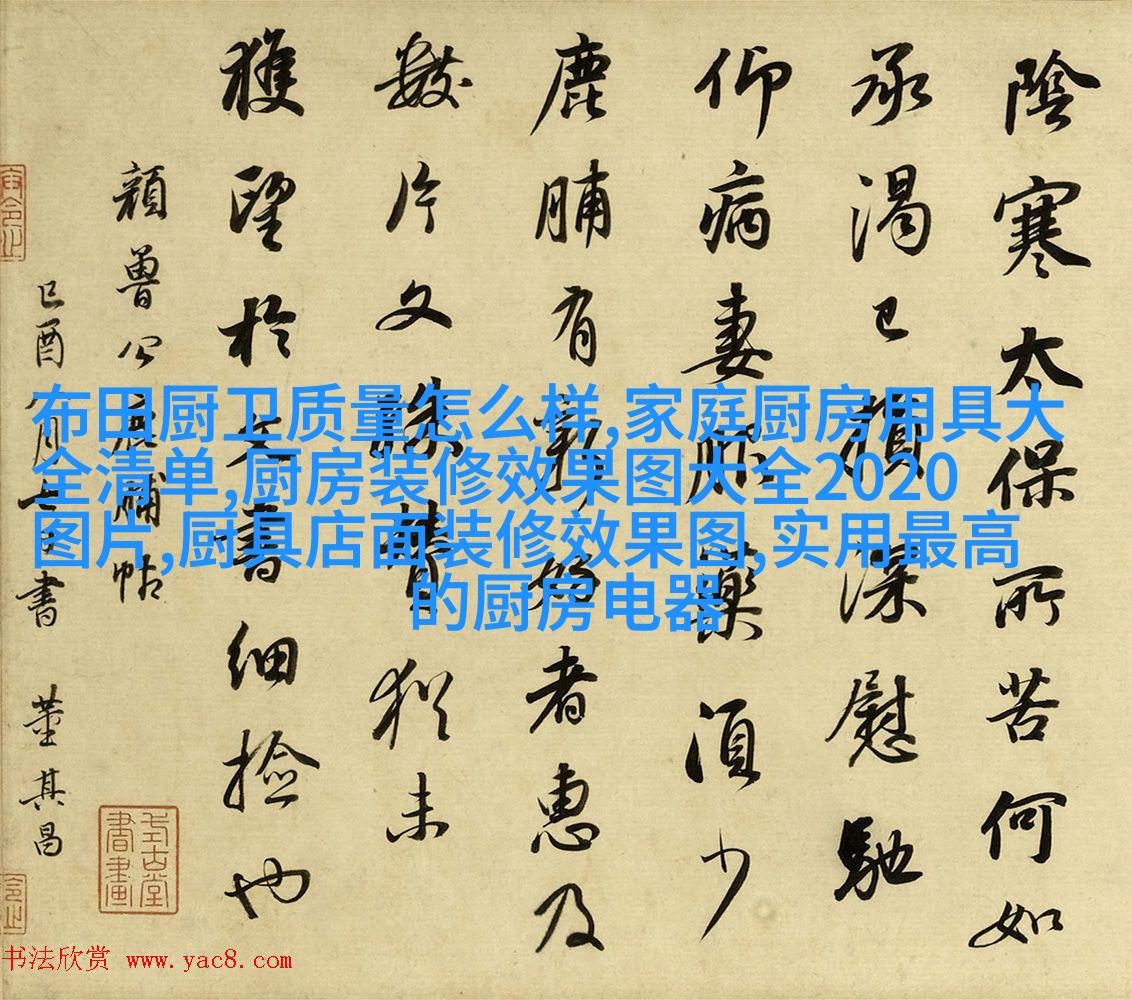 陰寒太保所苦何如
承渴已積深慰馳
仰病妻服藥須少
鹿脯有新好者惠及
數片文殊
猶未
獲望於
書細撿也
顏魯公鹿脯帖
己酉
書
董其昌
玄古堂
書畫
布田厨卫质量怎么样,家庭厨房用具大
全清单,厨房装修效果图大全2020
图片,厨具店面装修效果图,实用最高
的厨房电器
书法欣赏 www.yac8.com